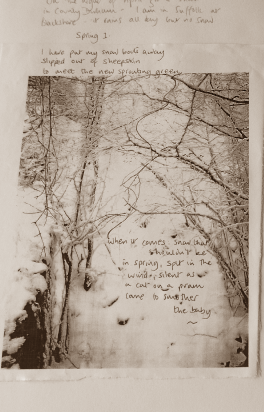 in County Durham - I am in Suffolk or
Berkshire - it rains all day but no snow
Spring 1
I have put my snow boots away
slipped out of sheepskin
to meet the new sprouting green
When it comes, snow that
shouldn't be
in spring, spat in the
wind, silent as
a cat on a pram
come to smother
the baby.
~